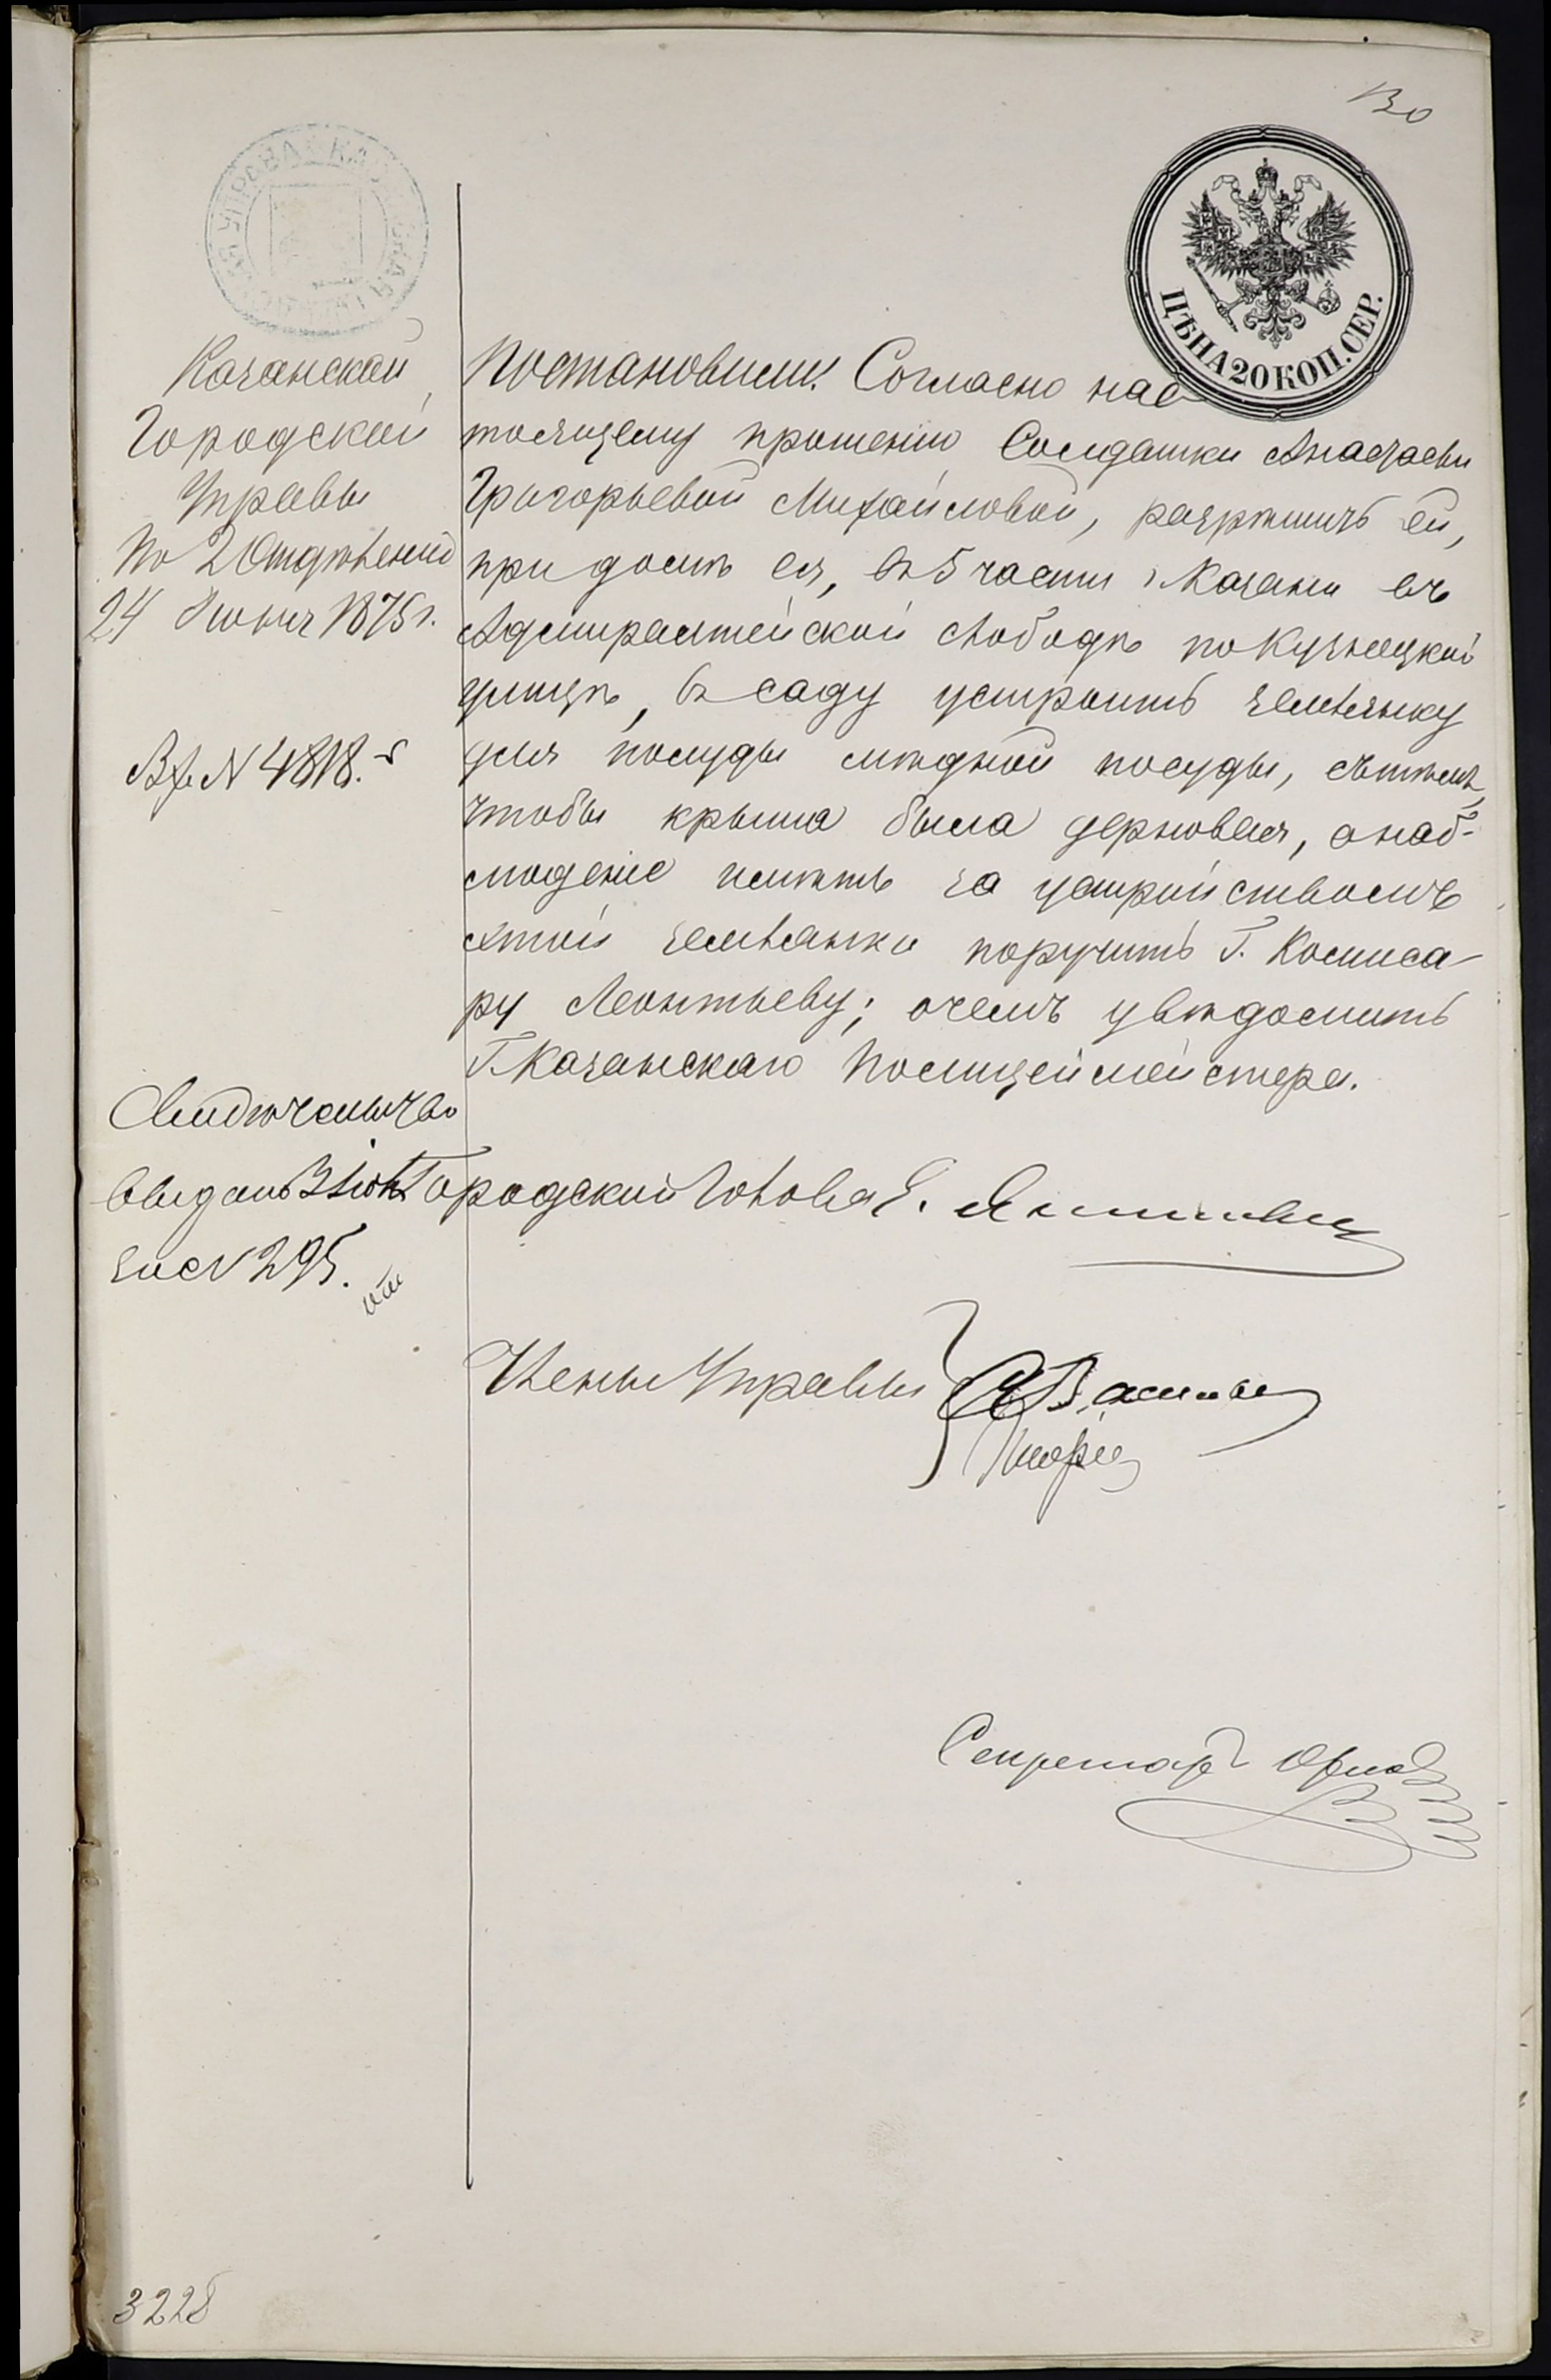 130
ЦѢНА 20 КОП. СЕР.
Казанской
Городской
Управы
По 2 Отдѣленію
24 Іюня 1875 г.
Вх № 4818.
Постановили: Согласно нас-
тоящему прошенію Солдатки Анастасьи
Григорьевой Михайловой, разрѣшить ей,
при домѣ ея, въ 5 части г. Казани въ
Адмиралтейской слободѣ по Кузнецкой
улицѣ, въ саду устроить землянку
для полуды мѣдной посуды, съ тѣмъ,
чтобы крыша была дерновая, а наб-
людение имѣть за устройствомъ
этой землянки поручить Г. Комиса-
ру Леонтьеву; о чемъ увѣдомить
Г. Казанскаго Полицеймейстера.
выдано
за № 295.
Городской Голова Э. Янишевскій
Члены Управы
Секретарь Орлов
3228